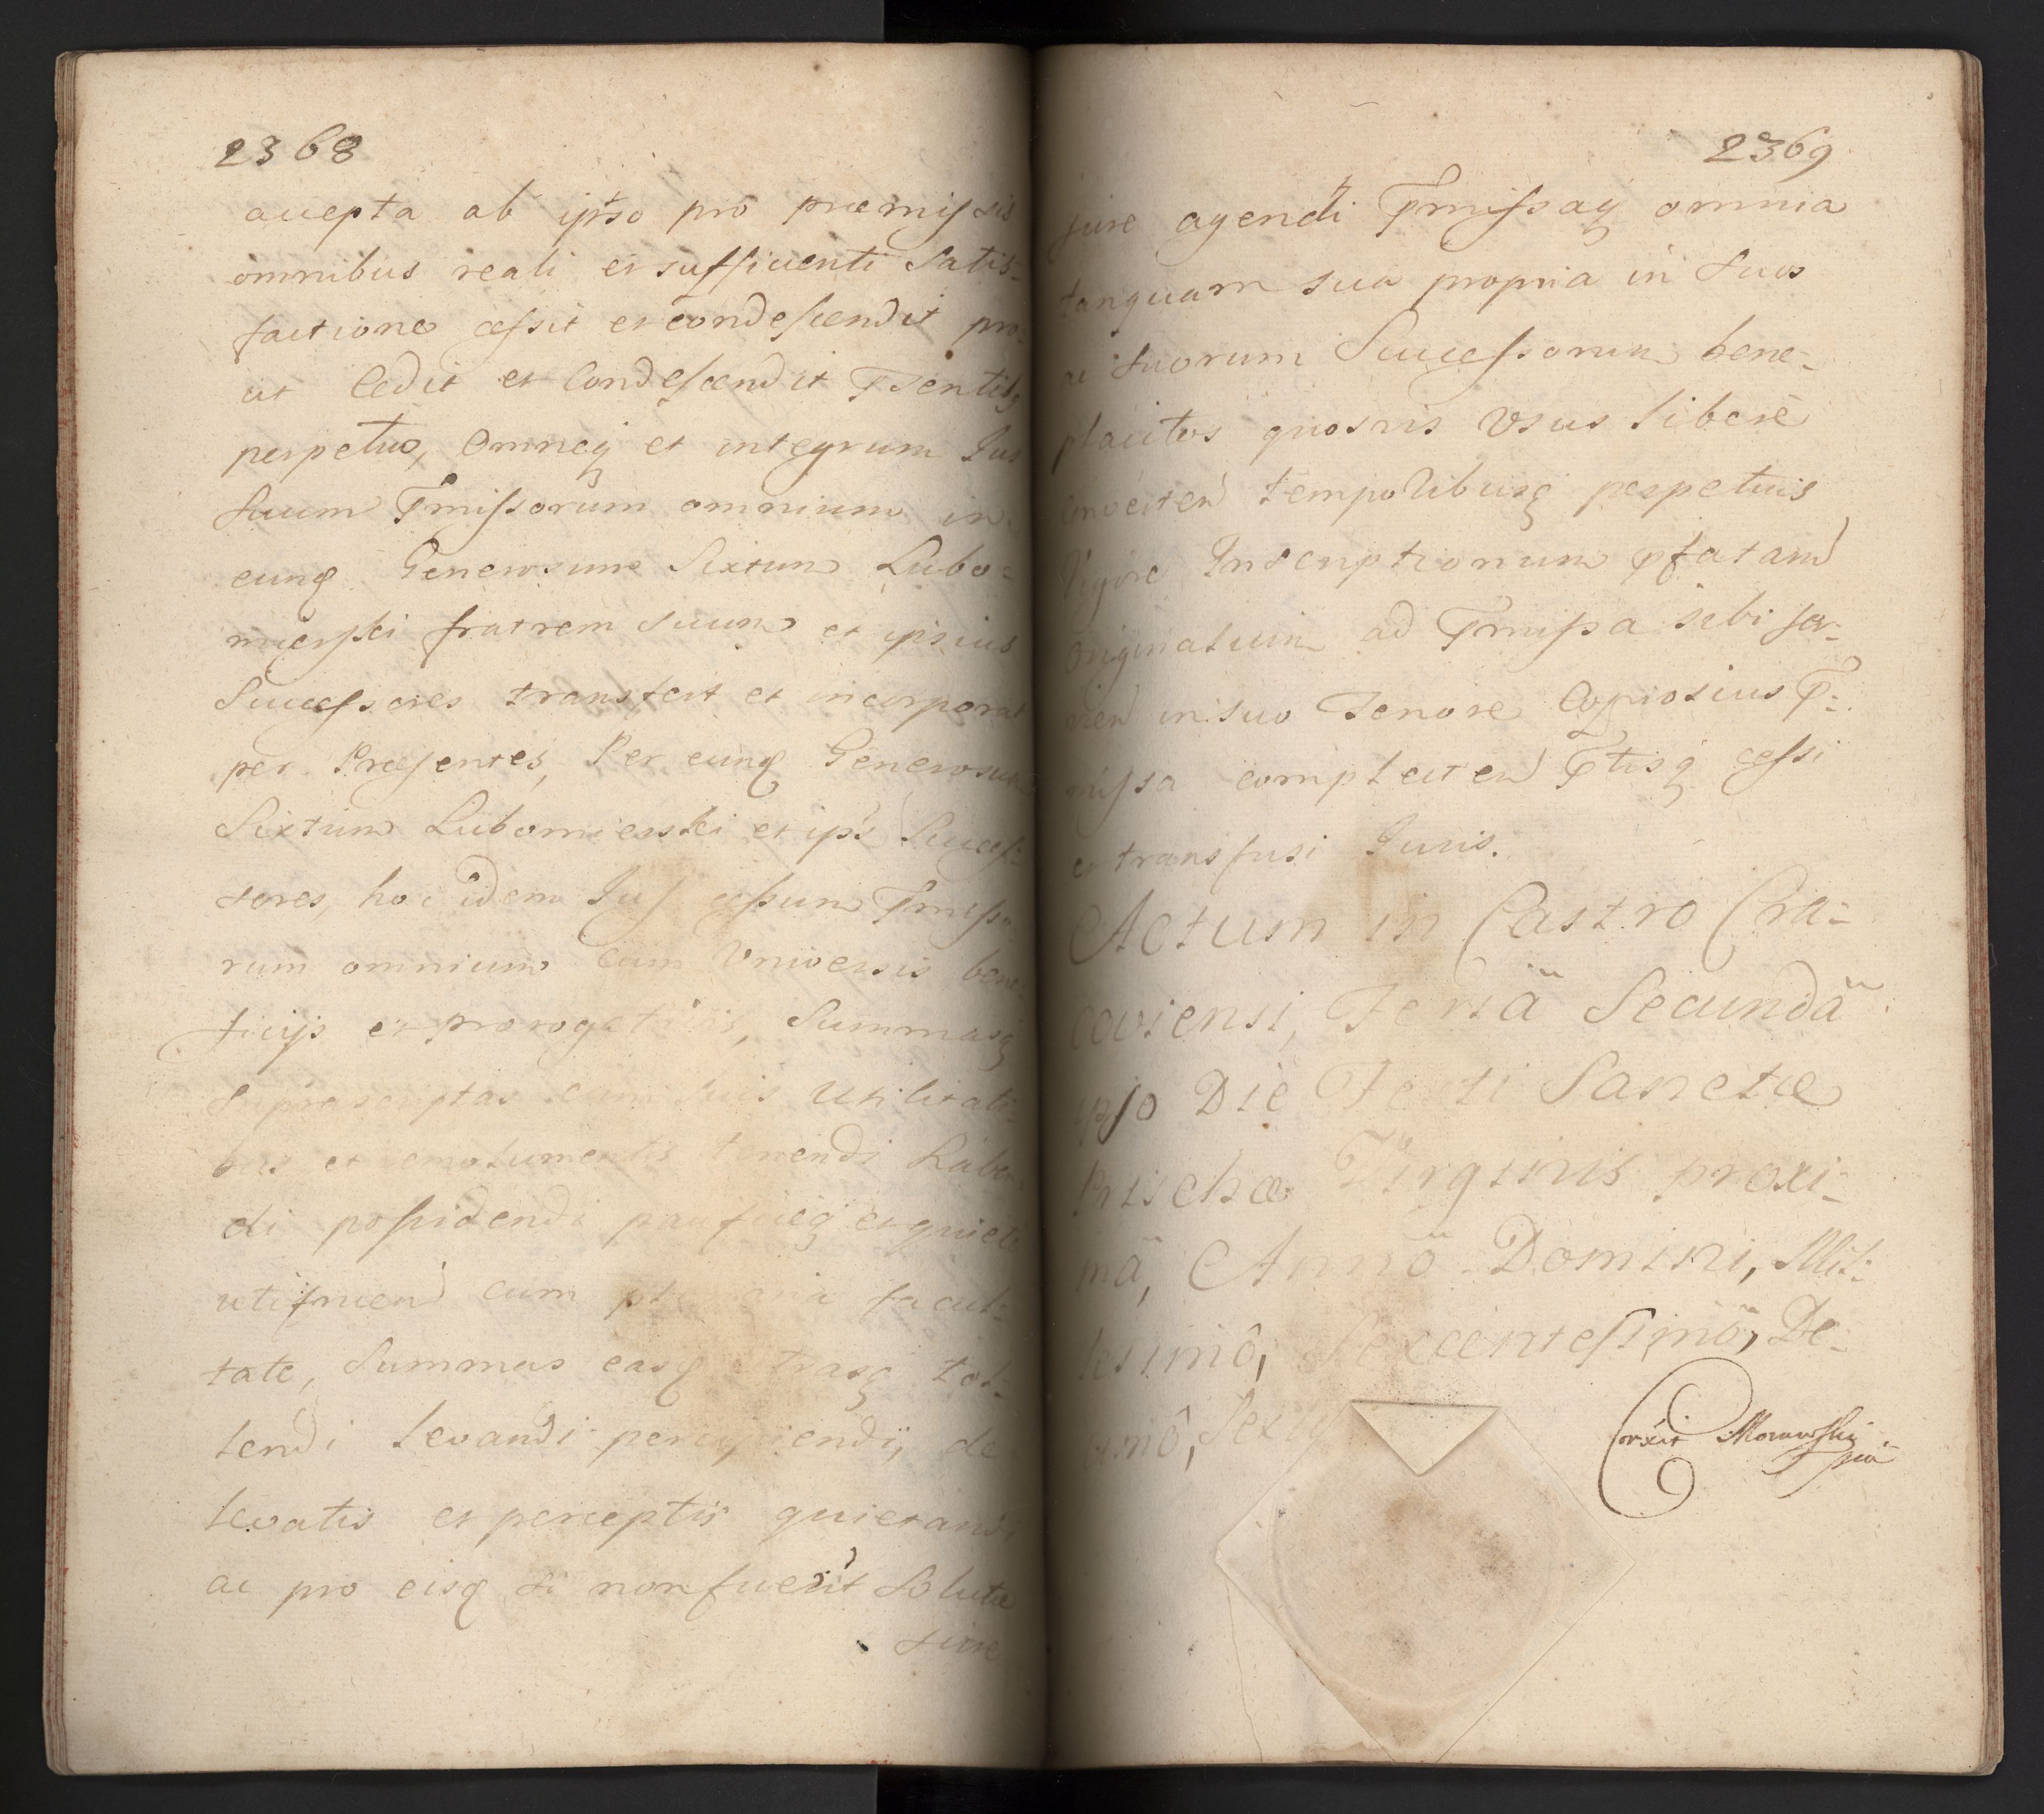 2368
accepta ab ipso pro præmissis
omnibus reali et sufficienti Satis-
factione cessit et condescendit pro-
ut Cedit et Condescendit Psentibq
perpetuo, Omneq et integrum Jus
Suum Pmissorum omnium in
eunq Generosum Sixtum Lubo-
mierski fratrem suum et ipsius
Successores transfert et incorporat
per Præsentes, Per eunq Generosum
Sixtum Lubomierski et ips Succes-
sores, hoc idem Jus cessum Pmisso-
rum omnium cum Universis bene-
ficijs et prærogativis, Summasq
Suprascriptas cum suis Utilitati-
bus et emolumentis tenendi habe-
di possidendi pacificeq et quiete
utifruen cum plenaria facul-
tate, Summas easq tol-
lendi levandi percipiendi, de
levatis et perceptis quietandi
ac pro eisq si non fuerit Solutæ
jure
2369
jure agendi Pmissaq omnia
tanquam sua propria in Suos
ac Suorum Successorum bene-
placitos quosvis Usus libere
Converten temporibusq perpetuis
Vigore Inscriptionum pfatarum
Originalium ad Pmissa sibi ser-
vien in suo Tenore Copiosius P-
missa complecten Ptisq cessi
et transfusi Juris.
Actum in Castro Cra-
coviensi, Feriâ Secundâ
ipso Die Festi Sanctæ
Prischæ Virginis proxi-
mâ, Annô Domini, Mil-
lesimô, Sexcentesimô, De-
cimô, Sexto
Corrxit Morawski
mp